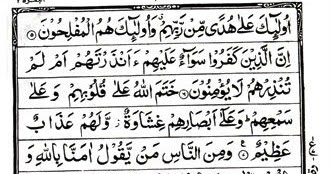 اُولٰٓئِكَ عَلٰى هُدًى مِّنْ رَّبِّهِمْ ۙ وَاُولٰٓئِكَ هُمُ الْمُفْلِحُوْنَ ○
اِنَّ الَّذِيْنَ كَفَرُوْا سَوَآءٌ عَلَيْهِمْ ءَاَنْذَرْتَهُمْ اَمْ لَمْ
تُنْذِرْهُمْ لَا يُؤْمِنُوْنَ ○ خَتَمَ اللّٰهُ عَلٰى قُلُوْبِهِمْ وَعَلٰى
سَمْعِهِمْ ۭ وَعَلٰٓى اَبْصَارِهِمْ غِشَاوَةٌ ۡ وَّلَهُمْ عَذَابٌ
عَظِيْمٌ ○ وَمِنَ النَّاسِ مَنْ يَّقُوْلُ اٰمَنَّا بِاللّٰهِ وَ